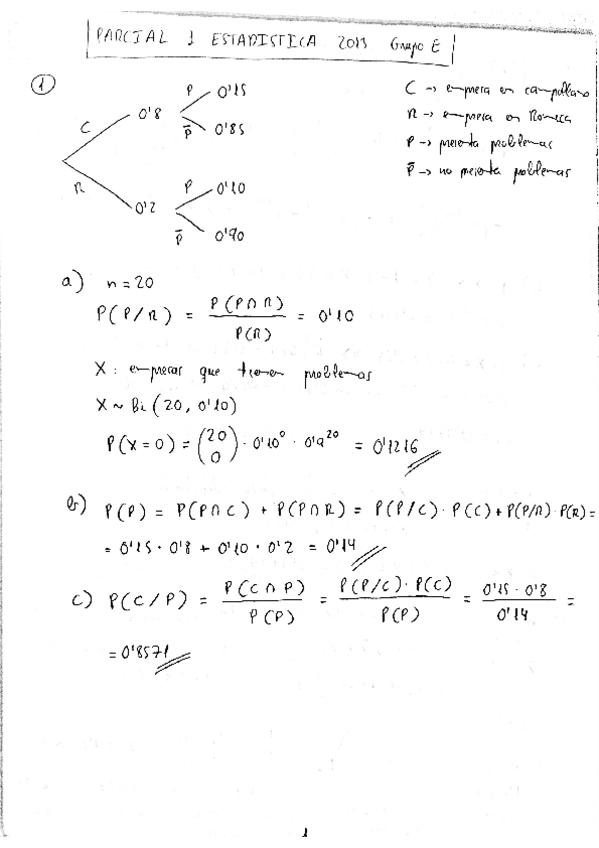 PARCIAL 1 ESTADISTICA 2013 Grupo E
1
C → empresa en campollano
R → empresa en Romica
P → presenta problemas
P̄ → no presenta problemas
C 0'8 P 0'15
P̄ 0'85
R 0'2 P 0'10
P̄ 0'90
a) n = 20
P(P/R) = P(P∩R) / P(R) = 0'10
X: empresas que tienen problemas
X ~ Bi(20, 0'10)
P(X=0) = (20 0) · 0'10⁰ · 0'9²⁰ = 0'1216
b) P(P) = P(P∩C) + P(P∩R) = P(P/C) · P(C) + P(P/R) · P(R) =
= 0'15 · 0'8 + 0'10 · 0'2 = 0'14
c) P(C/P) = P(C∩P) / P(P) = P(P/C) · P(C) / P(P) = 0'15 · 0'8 / 0'14 =
= 0'8571
1